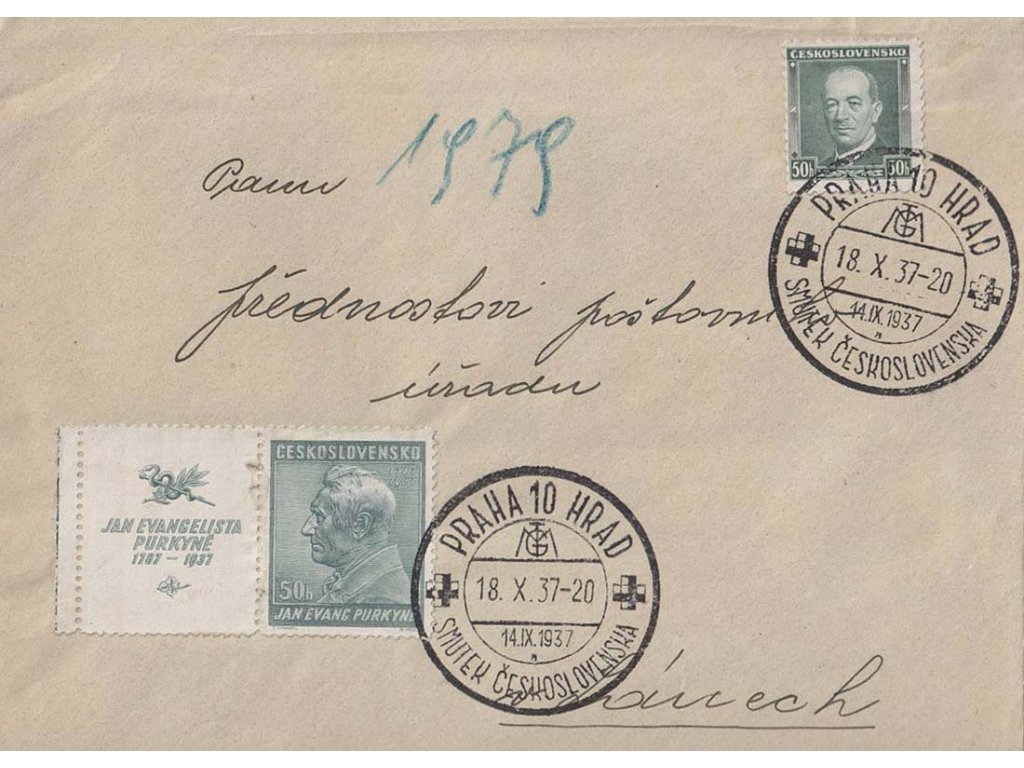 ČESKOSLOVENSKO
50h 50h
1979
Panu
přednostovi poštovní
úřadu
PRAHA 10 HRAD
TGM
18. X. 37-20
14.IX.1937
a
SMUTEK ČESKOSLOVENSKA
JAN EVANGELISTA
PURKYNĚ
1787 – 1937
ČESKOSLOVENSKO
1787
1937
50h
JAN EVANG. PURKYNĚ
PRAHA 10 HRAD
TGM
18. X. 37-20
14.IX.1937
a
SMUTEK ČESKOSLOVENSKA
v Lánech